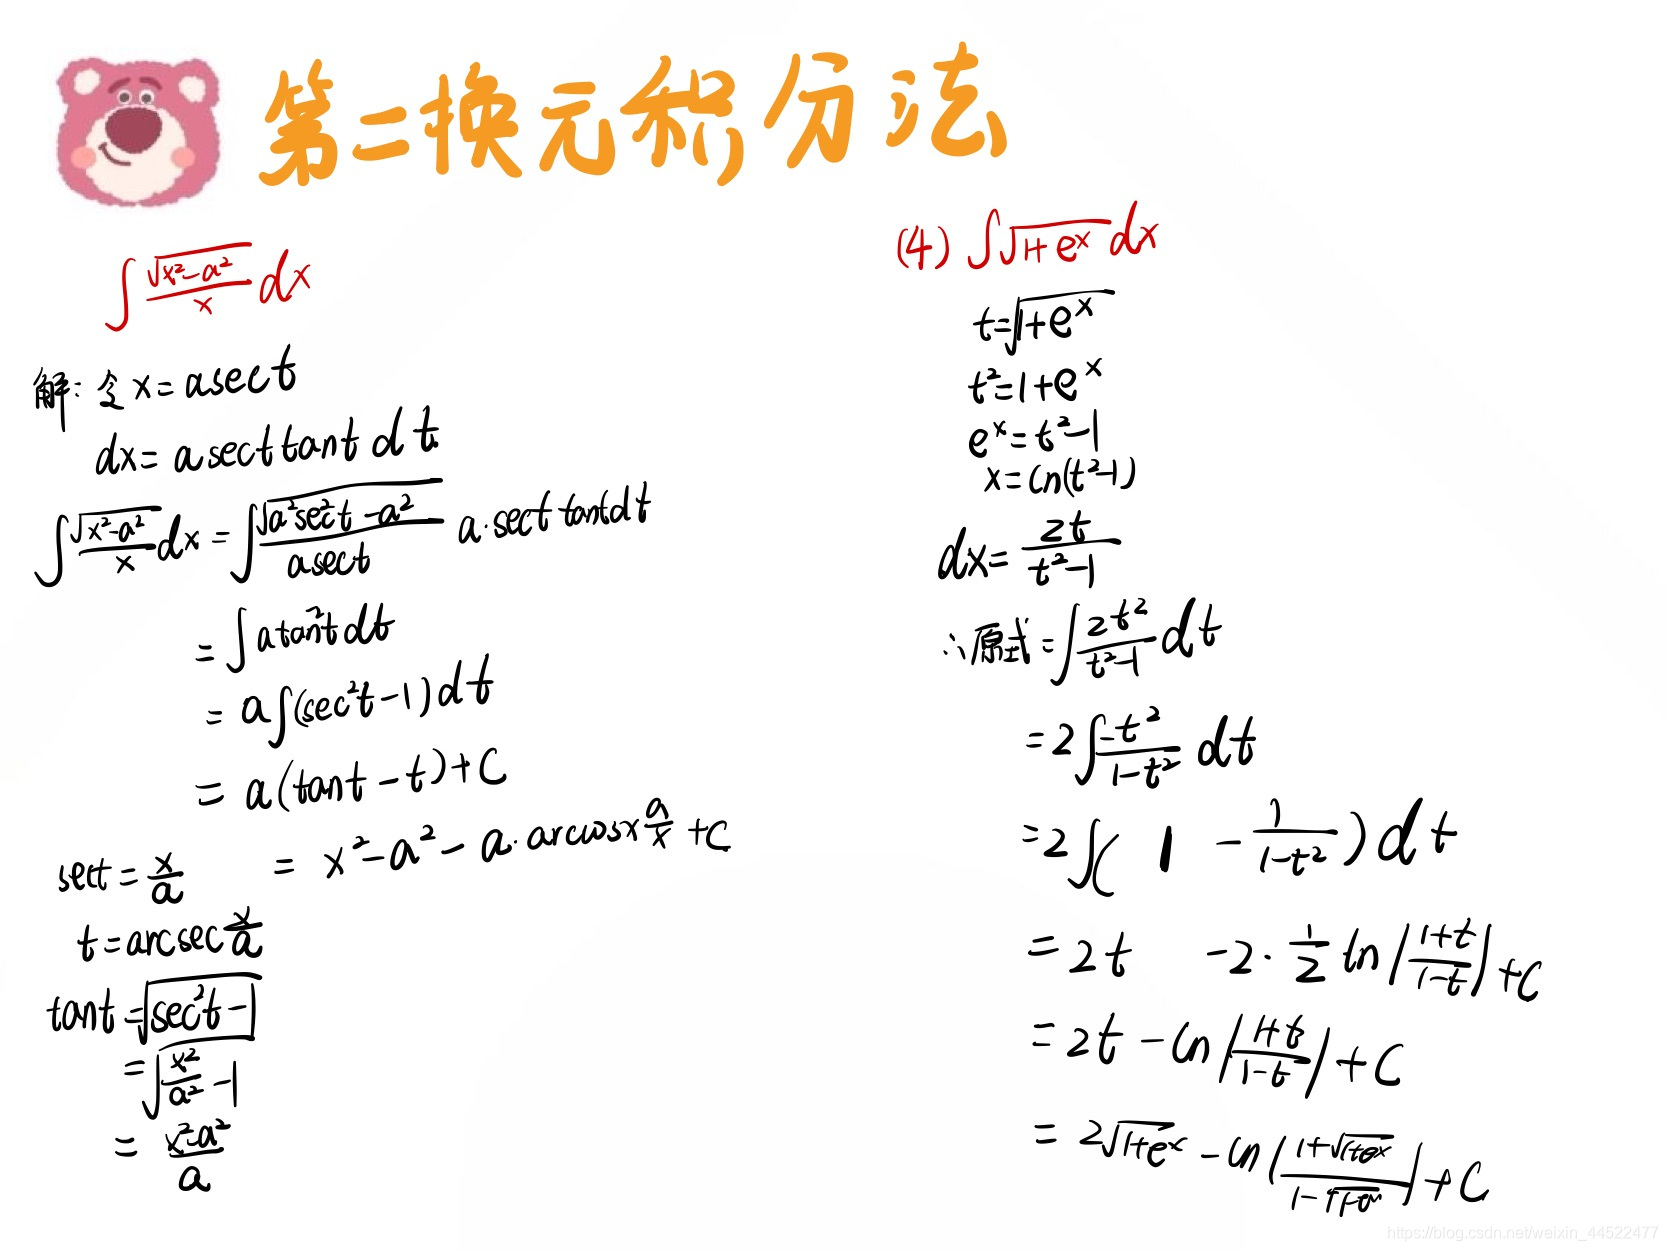 第二换元积分法
∫ √(x²-a²)/x dx
解: 令 x = a sect
dx = a sect tant dt
∫ √(x²-a²)/x dx = ∫ √(a²sec²t - a²)/(a sect) a·sect tant dt
= ∫ a tan²t dt
= a∫(sec²t - 1) dt
= a(tant - t) + C
= x² - a² - a·arccosx a/x + C
sect = x/a
t = arcsec x/a
tant = √(sec²t - 1)
= √(x²/a² - 1)
= (x²-a²)/a
(4) ∫√(1+e^x) dx
t = √(1+e^x)
t² = 1+e^x
e^x = t²-1
x = ln(t²-1)
dx = 2t/(t²-1)
∴原式 = ∫ 2t²/(t²-1) dt
= 2∫ -t²/(1-t²) dt
= 2∫( 1 - 1/(1-t²) ) dt
= 2t - 2·1/2 ln|(1+t)/(1-t)| + C
= 2t - ln|(1+t)/(1-t)| + C
= 2√(1+e^x) - ln|(1+√(1+e^x))/(1-√(1+e^x))| + C
https://blog.csdn.net/weixin_44522477